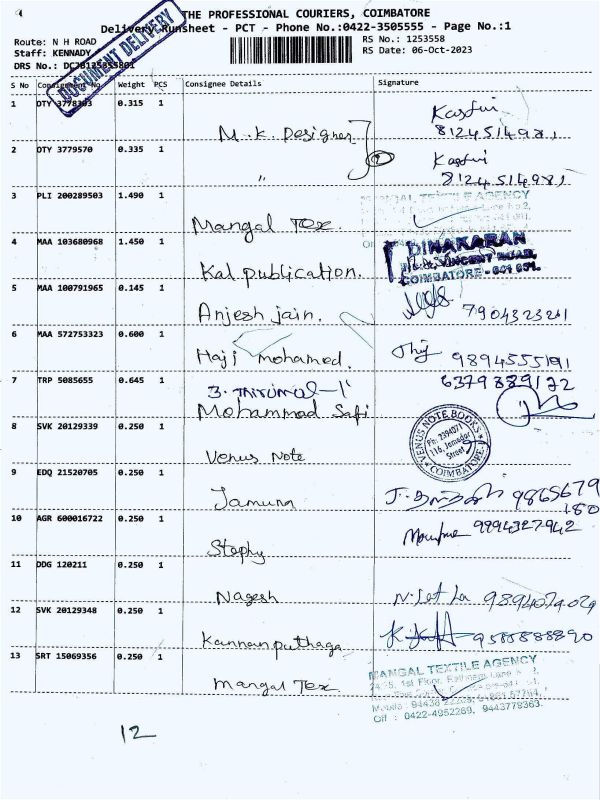 THE PROFESSIONAL COURIERS, COIMBATORE
Delivery Runsheet - PCT - Phone No.:0422-3505555 - Page No.:1
Route: N H ROAD
RS No.: 1253558
Staff: KENNADY
RS Date: 06-Oct-2023
DRS No.:
DOCUMENT DELIVERY
S No Consignment No Weight PCS Consignee Details Signature
1 OTY 0.315 1 M.K. Designer
8124514981
2 OTY 3779570 0.335 1 "
8124514981
3 PLI 200289503 1.490 1 Mangal Tex.
MANGAL TEXTILE AGENCY
4 MAA 103680968 1.450 1 Kal publication.
DINAKARAN
VINCENT ROAD,
COIMBATORE - 641 001.
5 MAA 100791965 0.145 1 Anjesh jain.
7904323261
6 MAA 572753323 0.600 1 Haji mohamed.
9894555191
7 TRP 5085655 0.645 1
6379889122
Mohammad Safi
8 SVK 20129339 0.250 1 Venus Note
VENUS NOTE BOOKS
Ph: 2394071
116, Jamedar
Street
COIMBATORE
9 EDQ 21520705 0.250 1 Jamuna
9865679
180
10 AGR 600016722 0.250 1 Stephy
9894327942
11 DDG 120211 0.250 1 Nagesh
12 SVK 20129348 0.250 1 Kannanputhaga
9588888890
13 SRT 15069356 0.250 1 Mangal Tex
MANGAL TEXTILE AGENCY
1st Floor,
Off : 0422-4952269, 9443778363.
12